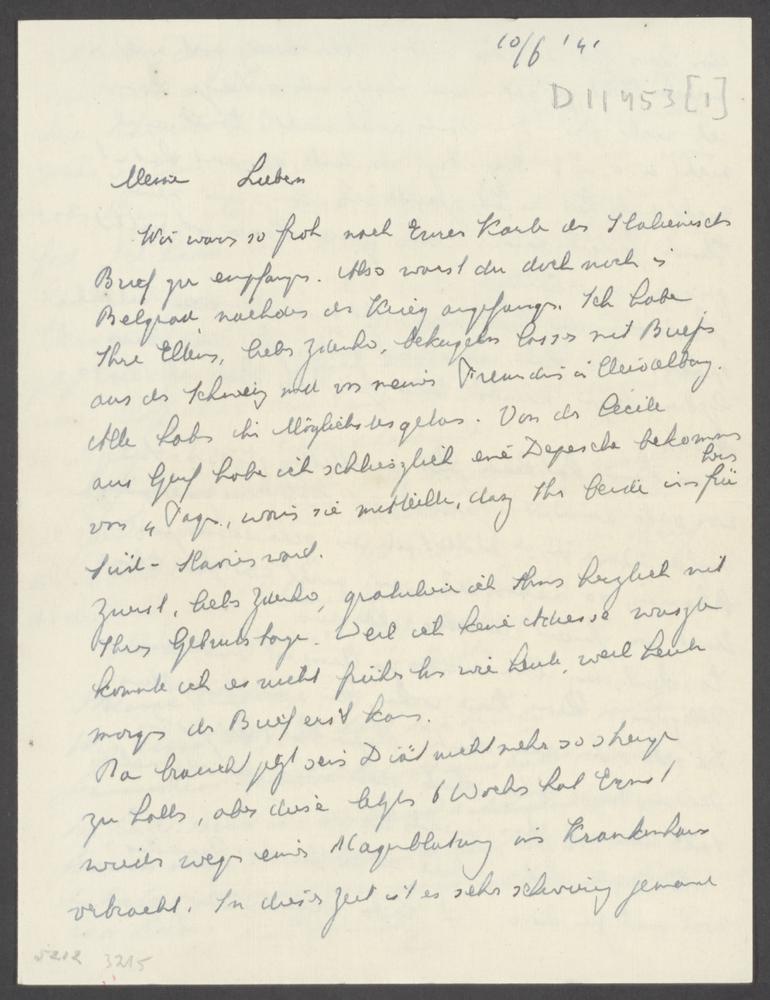 10/6 '41
D 11453 [1]
Meine Lieben
Wir waren so froh nach Eurer Karte den Italienischen
Brief zu empfangen. Also warst du doch noch in
Belgrad nachdem der Krieg angefangen. Ich habe
Ihre Eltern, liebe Zdenko, lassen mit Briefen
aus der Schweiz und von meiner Freundin in
Alle haben ihr Möglichstes getan. Von der Cécile
aus Genf habe ich schlieszlich eine Depesche bekommen
vor 4 Tagen, worin sie mitteilte, dasz Ihr beide in
Süd- Slavien wart.
Zuerst, liebe Zdenko, gratuliere ich Ihnen herzlich mit
Ihrem Geburtstage. Weil ich keine Adresse wuszte
konnte ich es nicht früher tun wie heute, weil heute
morgen der Brief erst kam.
Pa braucht jetzt sein Diät nicht mehr so strenge
zu halten, aber diese letzten 6 Wochen hat Ernst
wieder wegen einer Magenblutung im Krankenhaus
verbracht. In dieser Zeit ist es sehr schwierig jemand
5212 3215